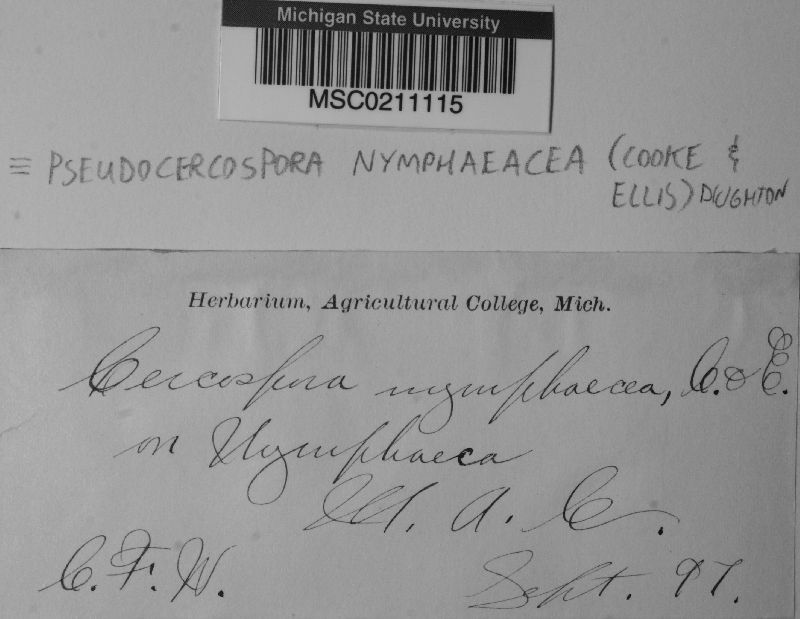 Michigan State University
MSC0211115
≡ PSEUDOCERCOSPORA NYMPHAEACEA (COOKE &
ELLIS) DEIGHTON
Herbarium, Agricultural College, Mich.
Cercospora nymphaecea, C. & E.
on Nymphaeca
M. A. C.
C. F. W. Sept. 97.